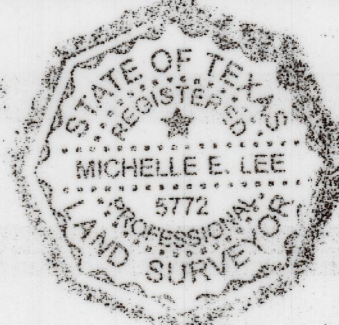 STATE OF TEXAS
REGISTERED
MICHELLE E. LEE
5772
PROFESSIONAL
LAND SURVEYOR